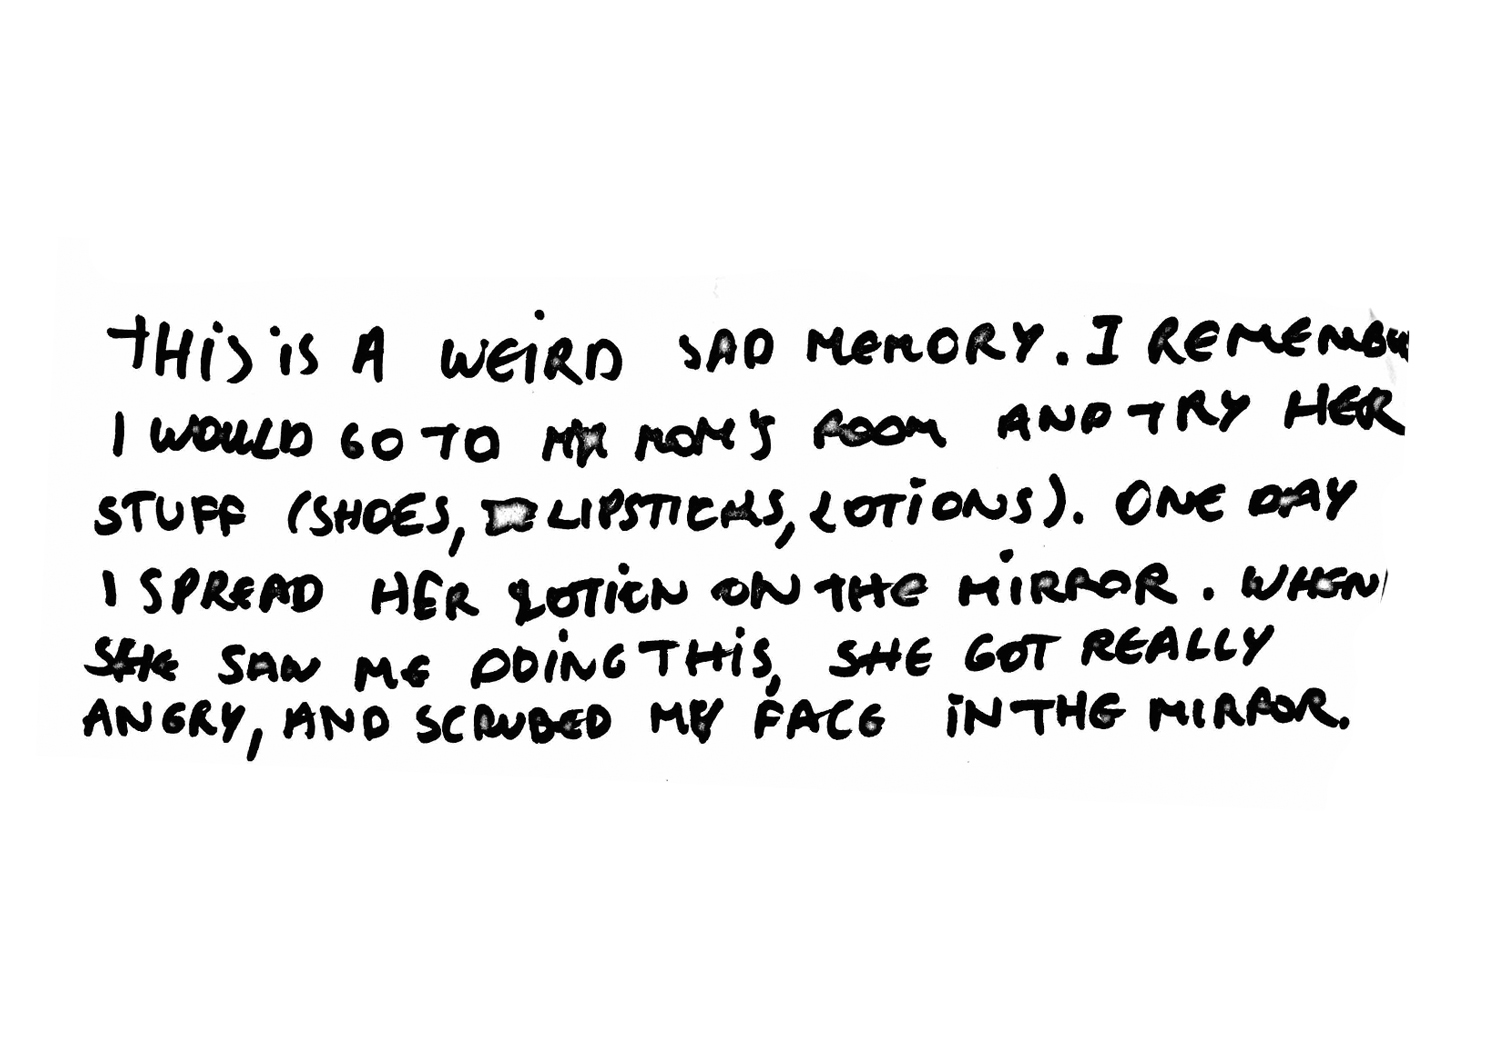 THIS IS A WEIRD SAD MEMORY. I REMEMBER
I WOULD GO TO MY MOM'S ROOM AND TRY HER
STUFF (SHOES, LIPSTICKS, LOTIONS). ONE DAY
I SPREAD HER LOTION ON THE MIRROR. WHEN
SHE SAW ME DOING THIS, SHE GOT REALLY
ANGRY, AND SCRUBED MY FACE IN THE MIRROR.